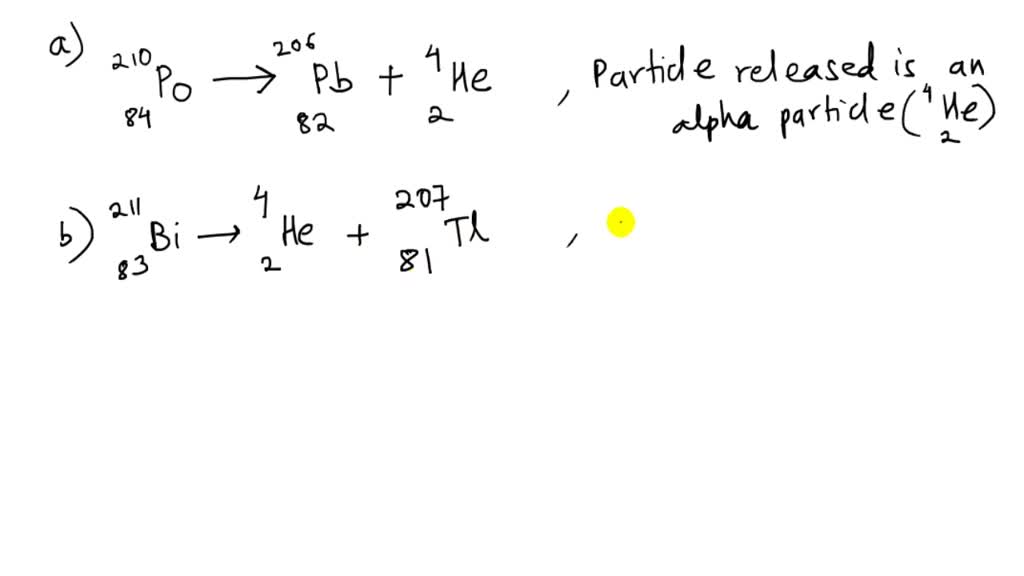 a) ²¹⁰₈₄Po → ²⁰⁶₈₂Pb + ⁴₂He , Particle released is an
alpha particle (⁴₂He)
b) ²¹¹₈₃Bi → ⁴₂He + ²⁰⁷₈₁Tl ,